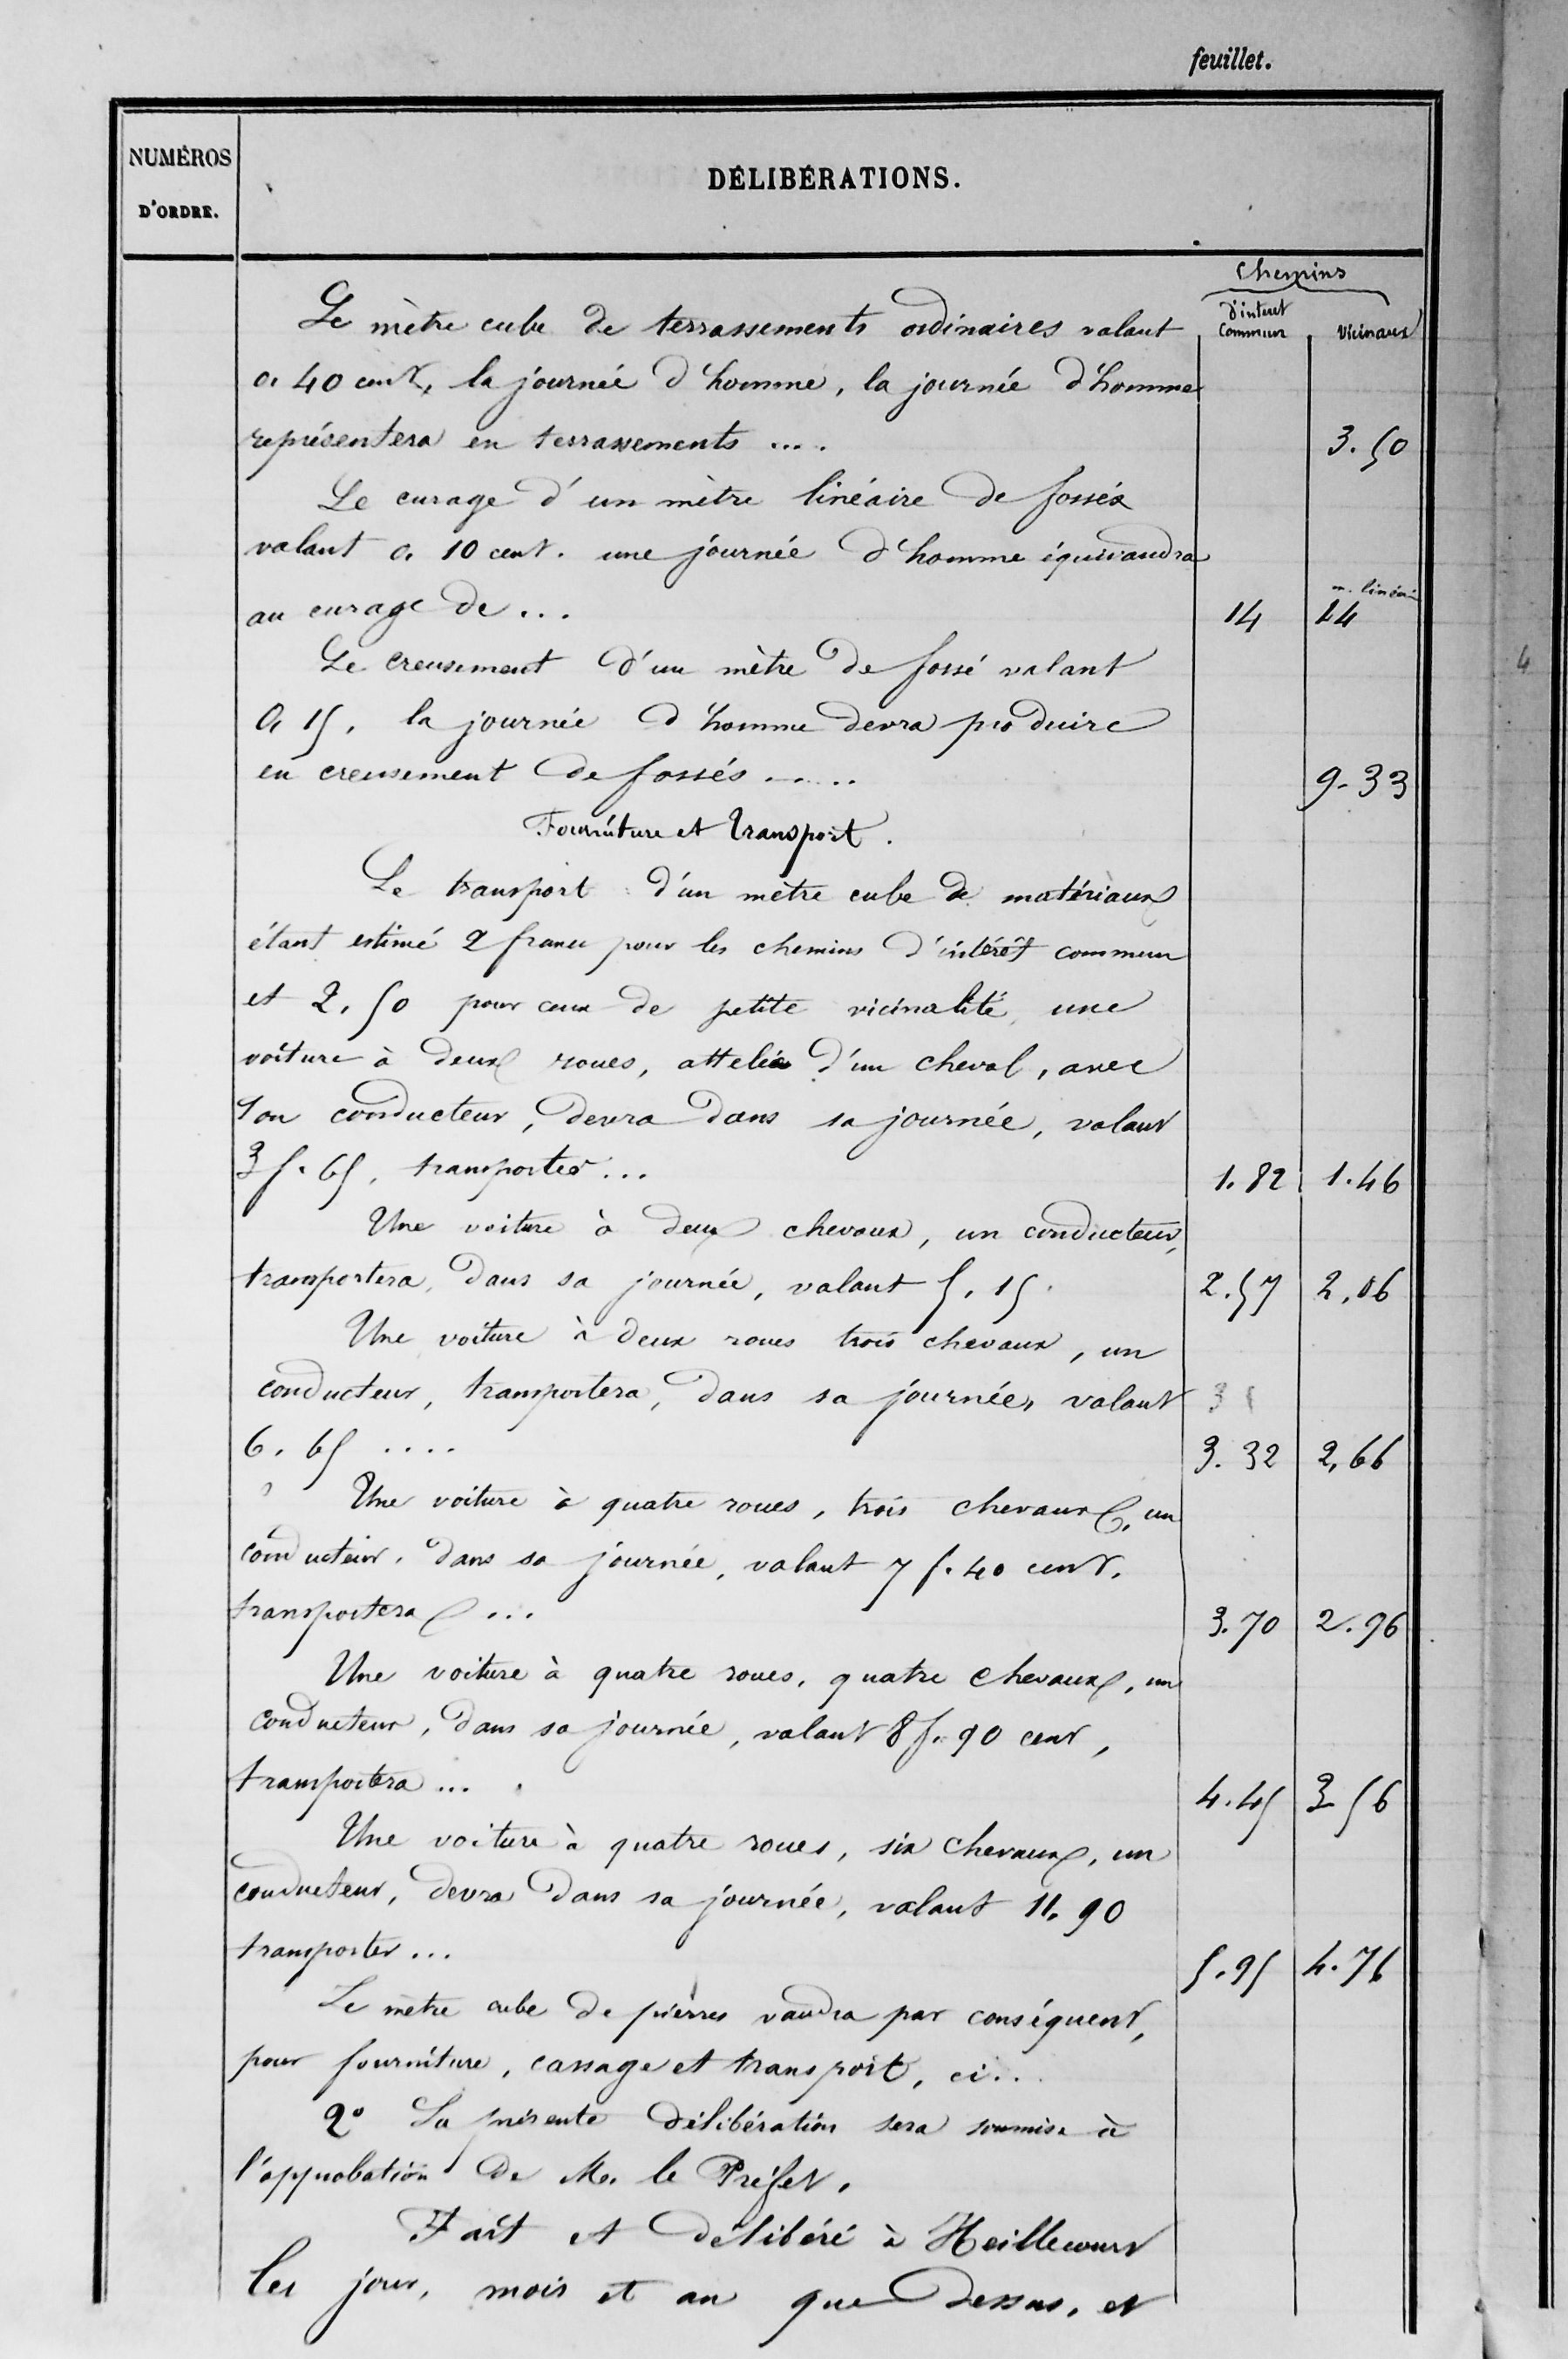 feuillet.
NUMÉROS
D'ORDRE.
DÉLIBÉRATIONS.
Chemins
d'intéret
Commun
Vicinaux
Le mètre cube de terrassements ordinaires valant
0. 40 cent, la journée d'homme, la journée d'homme
représentera en terrassements .... 3.50
Le curage d'un mètre linéaire de fossés
valant 0. 10 cent. une journée d'homme équivaudra
m. linéair
au curage de ... 14 14
Le creusement d'un mètre de fossé valant
0, 15, la journée d'homme devra produire
en creusement de fossés ..... 9.33
Fourniture et Transport.
Le transport d'un mètre cube de matériaux
étant estimé 2 francs pour les chemins d'intérêt commun
et 2,50 pour ceux de petite vicinalité, une
voiture à deux roues, attelée d'un cheval, avec
son conducteur, devra dans sa journée, valant
3 f. 65, transporter ... 1.82 1.46
Une voiture à deux chevaux, un conducteur,
transportera, dans sa journée, valant 5,15. 2.57 2,06
Une voiture à deux roues trois chevaux, un
conducteur, transportera, dans sa journée, valant 3
6. 65 .... 3.32 2,66
Une voiture à quatre roues, trois chevaux, un
conducteur, dans sa journée, valant 7 f. 40 cent.
transportera ... 3.70 2.96
Une voiture à quatre roues, quatre chevaux, un
conducteur, dans sa journée, valant 8 f. 90 cent,
transportera ... 4.45 3 56
Une voiture à quatre roues, six chevaux, un
conducteur, devra dans sa journée, valant 11. 90
transporter ... 5.95 4.76
Le mètre cube de pierres vaudra par conséquent,
pour fourniture, cassage et transport, ci...
2° La présente délibération sera soumise à
l'approbation de M. le Préfet.
Fait et délibéré à Heillecourt
les jour, mois et an que dessus, et